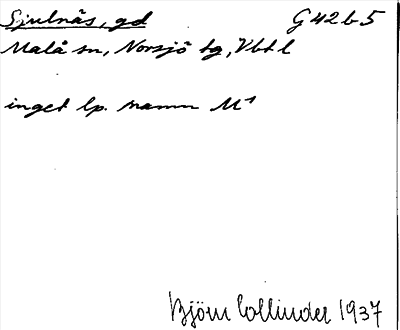 Sjulnäs, gd G42b5
Malå sn, Norsjö tg, Vbtl
inget lp. namn M¹
Björn Collinder 1937